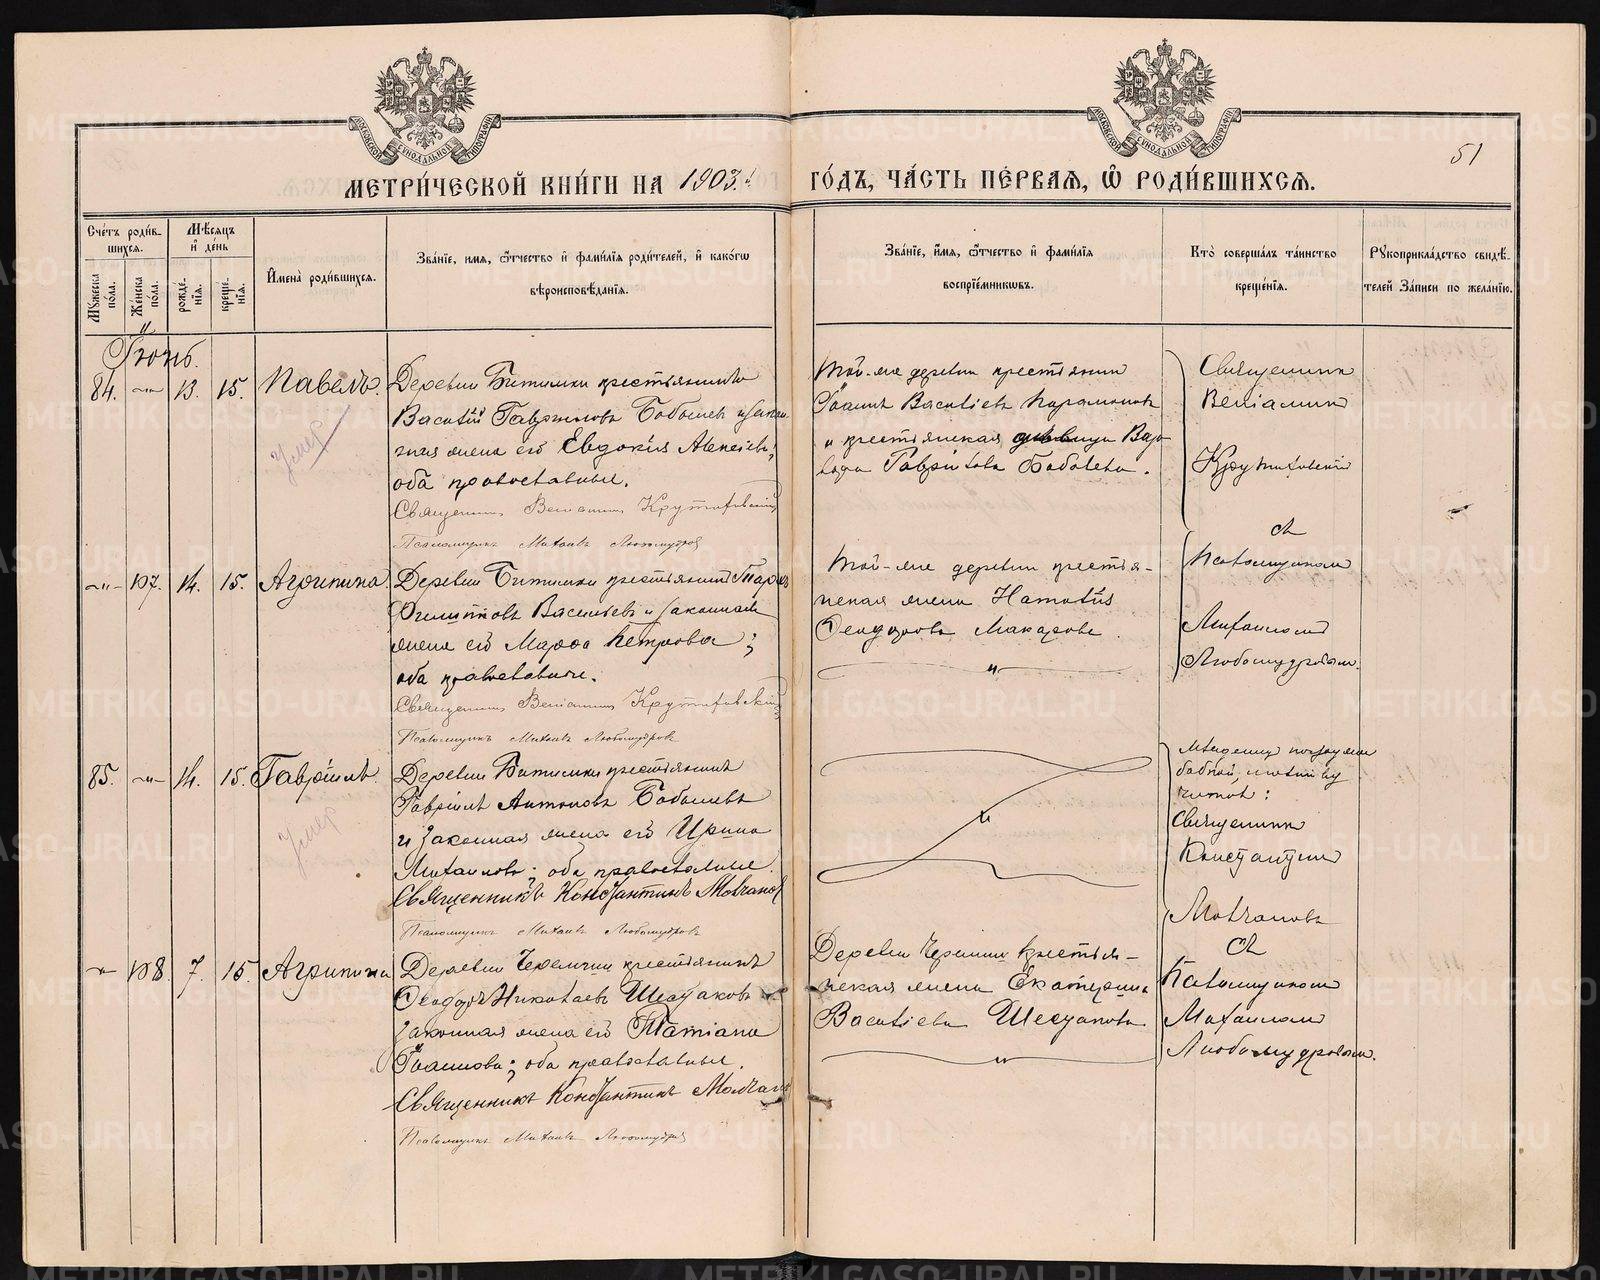 МЕТРИ́ЧЕСКОЙ КНИ́ГИ НА 1903.й ГО́ДЪ, ЧА́СТЬ ПЕ́РВАѦ, Ѽ РОДИ́ВШИХСѦ.
51
Сче́тъ роди́в-
шихся.
Мѣ́сяцъ
и де́нь
Мꙋжеска по́ла.
Же́нска по́ла.
рожде́нїѧ.
креще́нїѧ.
И҆мена̀ роди́вшихсѧ.
Зва́нїе, имѧ, ѻтчество и҆ фами́лїѧ роди́телей, и҆ како́гѡ
вѣроисповѣ́данїѧ.
Зва́нїе, и҆́мѧ, ѻтчество и҆ фами́лїѧ
воспрїе́мникѡвъ.
Кто̀ соверша́лъ та́инство
креще́нїѧ.
Рꙋкоприкла́дство свидѣ́-
телей За́писи по жела́нїю.
Іюнь.
84. —"— 13. 15. Павелъ.
Умер
Деревни Битимки крестьянинъ
Василій Гавриловъ Бобылевъ и закон
ная жена его Евдокія Алексіева;
оба православные.
Священникъ Веніаминъ Крутиховскій
Псаломщикъ Михаилъ Любомудровъ
Той-же деревни крестьянинъ
Іоаннъ Васильевъ
и крестьянская девица Вар-
вара Гаврилова Бобылева.
Священникъ
Веніаминъ
Крутиховскій
—"— 107. 14. 15. Агрипина.
Деревни Битимки крестьянинъ
Филипповъ Васильевъ и законная
жена его Марфа Петрова;
оба православные.
Священникъ Веніаминъ Крутиховскій
Псаломщикъ Михаилъ Любомудровъ
Той-же деревни крестья-
нская жена Наталія
Ѳеодорова Макарова
"
съ
Псаломщикомъ
Михаиломъ
Любомудровымъ.
85. —"— 14. 15. Гавріилъ.
Умер
Деревни Битимки крестьянинъ
Гавріилъ Антоновъ Бобылевъ
и законная жена его Ирина
Михаилова; оба православные.
Священникъ Константинъ Молчановъ
Псаломщикъ Михаилъ Любомудровъ
"
Младенцу погружен
бабкой, молитву
читалъ:
Священникъ
Константинъ
Молчановъ
—"— 108. 7. 15. Агрипина
Деревни Черемши крестьянинъ
Ѳеодоръ Николаевъ Шестаковъ и
законная жена его Татіана
Іоаннова; оба православные.
Священникъ Константинъ Молчановъ
Псаломщикъ Михаилъ Любомудровъ
Деревни Черемши крестья-
нская жена Екатерина
Васильева Шестакова.
"
съ
Псаломщикомъ
Михаиломъ
Любомудровымъ.
METRIKI.GASO-URAL.RU